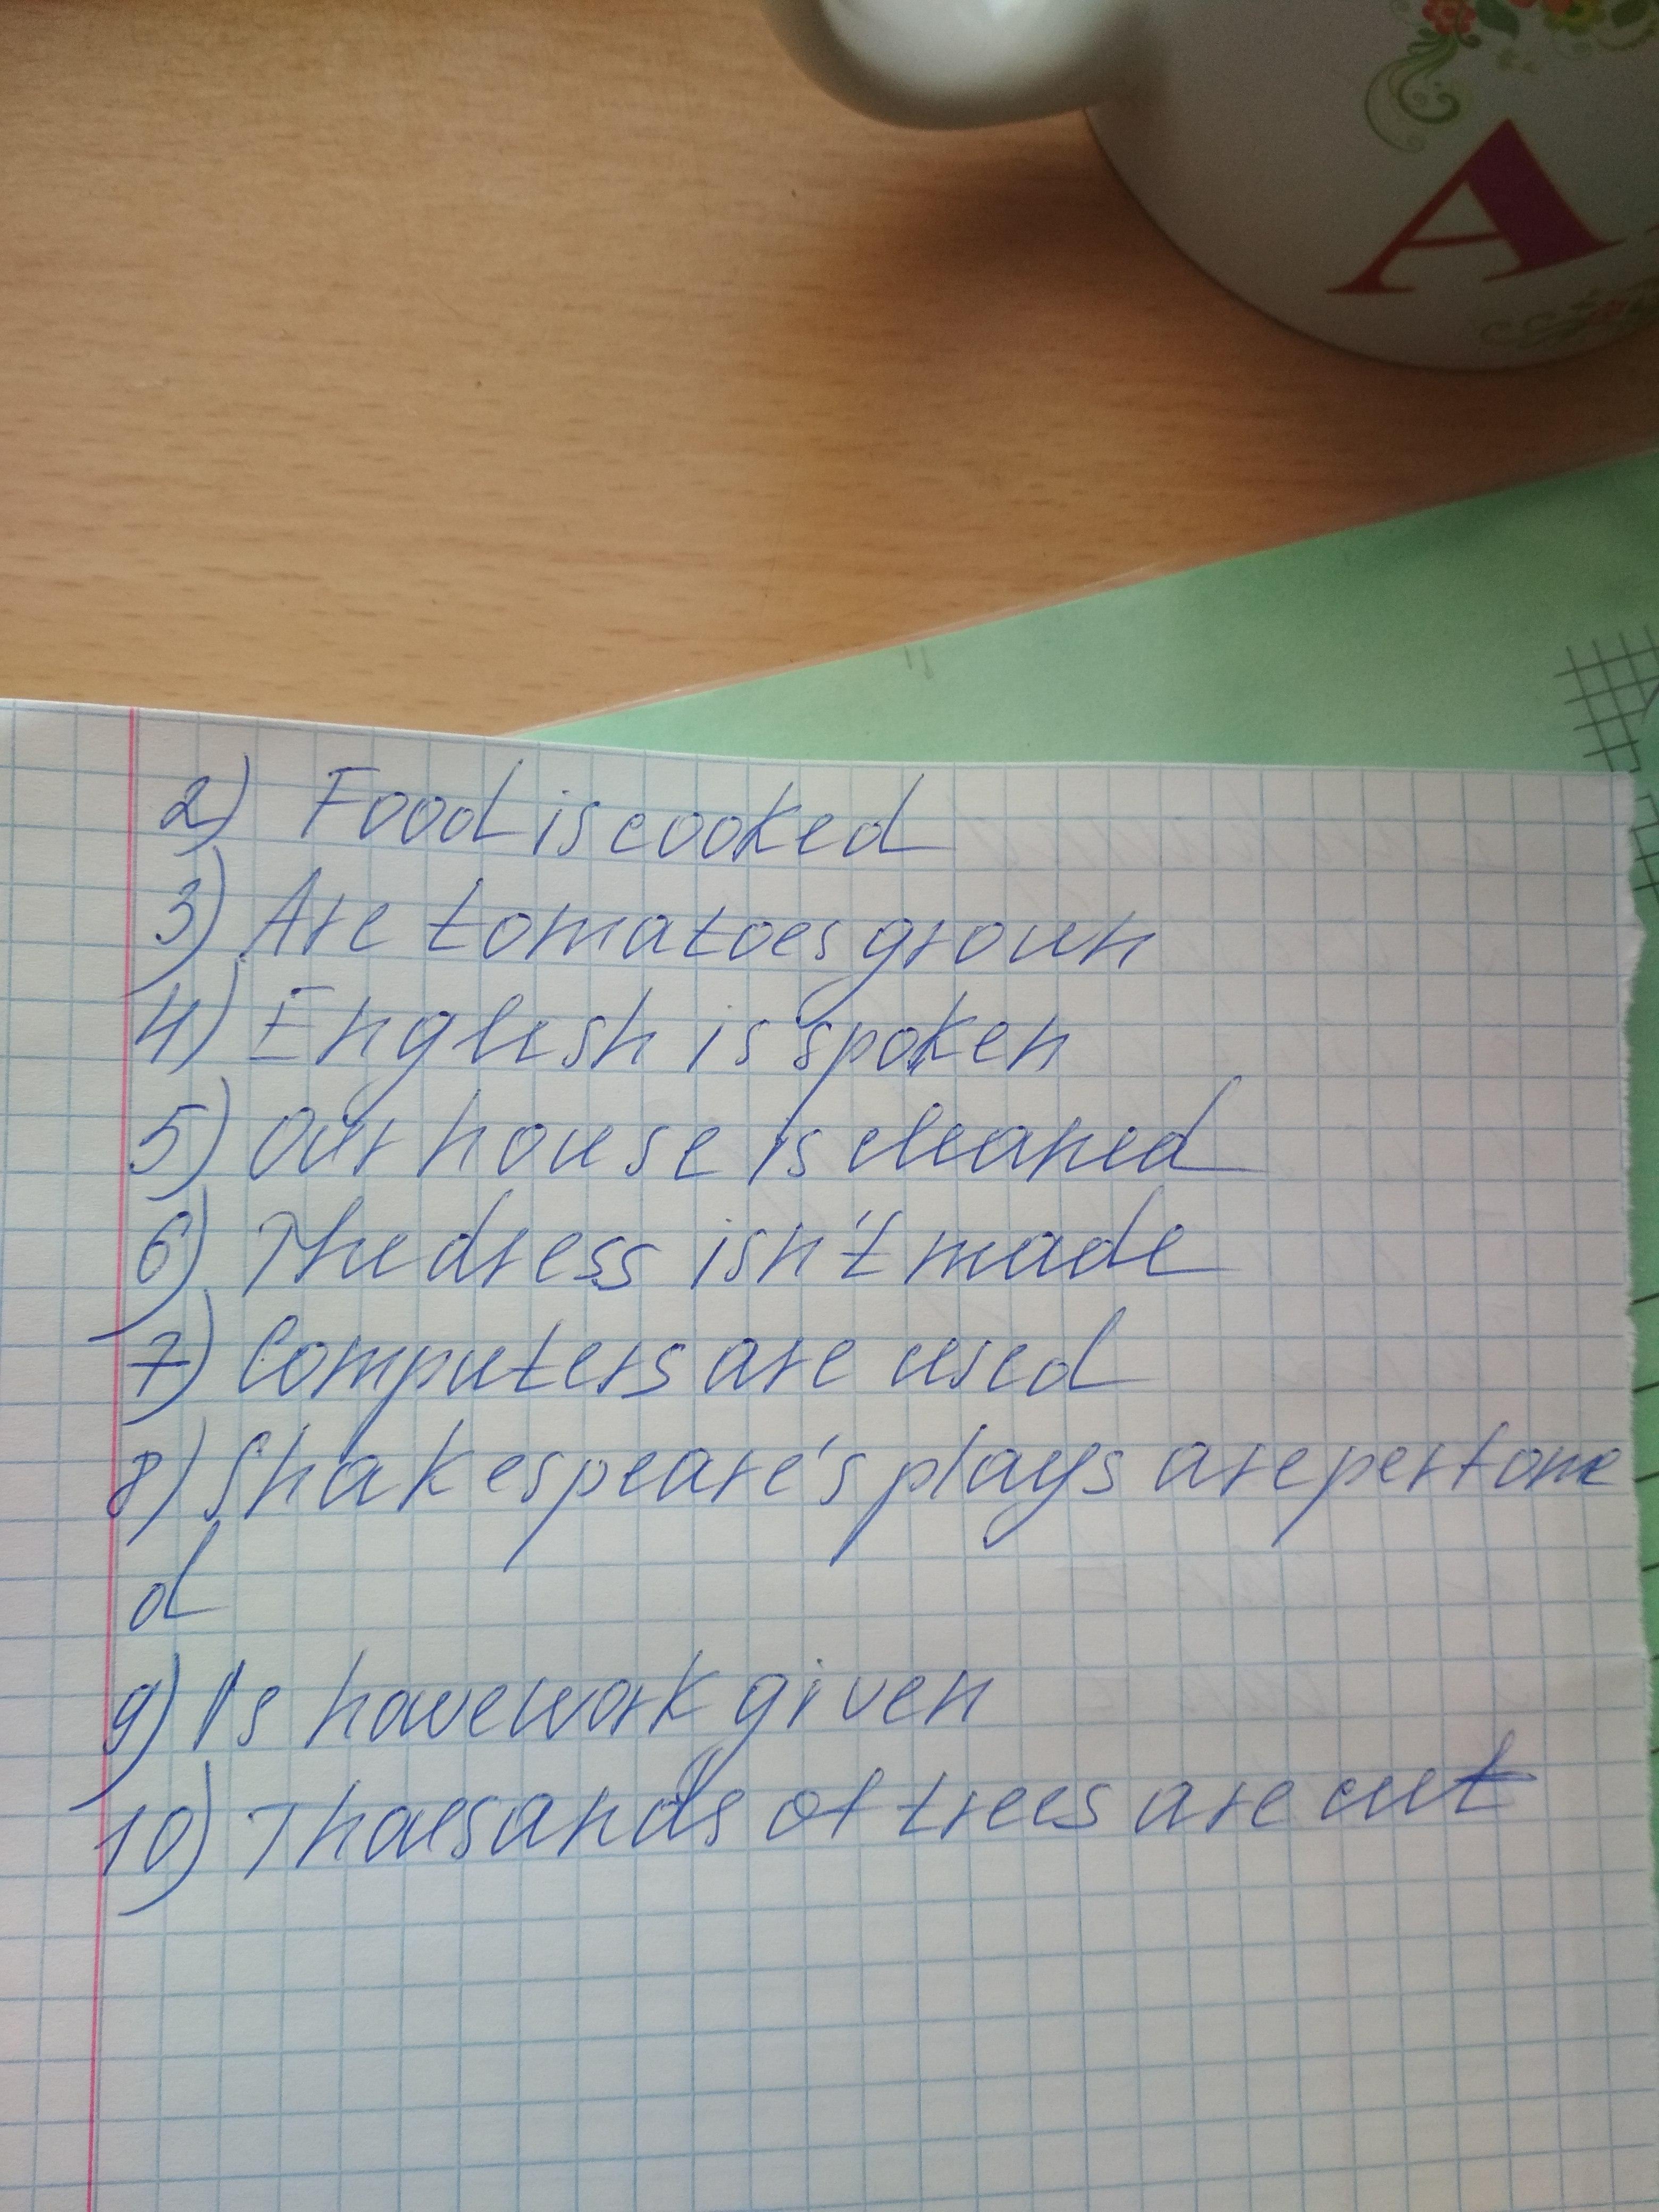 A
2) Food is cooked
3) Are tomatoes grown
4) English is spoken
5) Our house is cleaned
6) The dress isn't made
7) Computers are used
8) Shakespeare's plays are perfome
d
9) Is howework given
10) Thousands of trees are cut